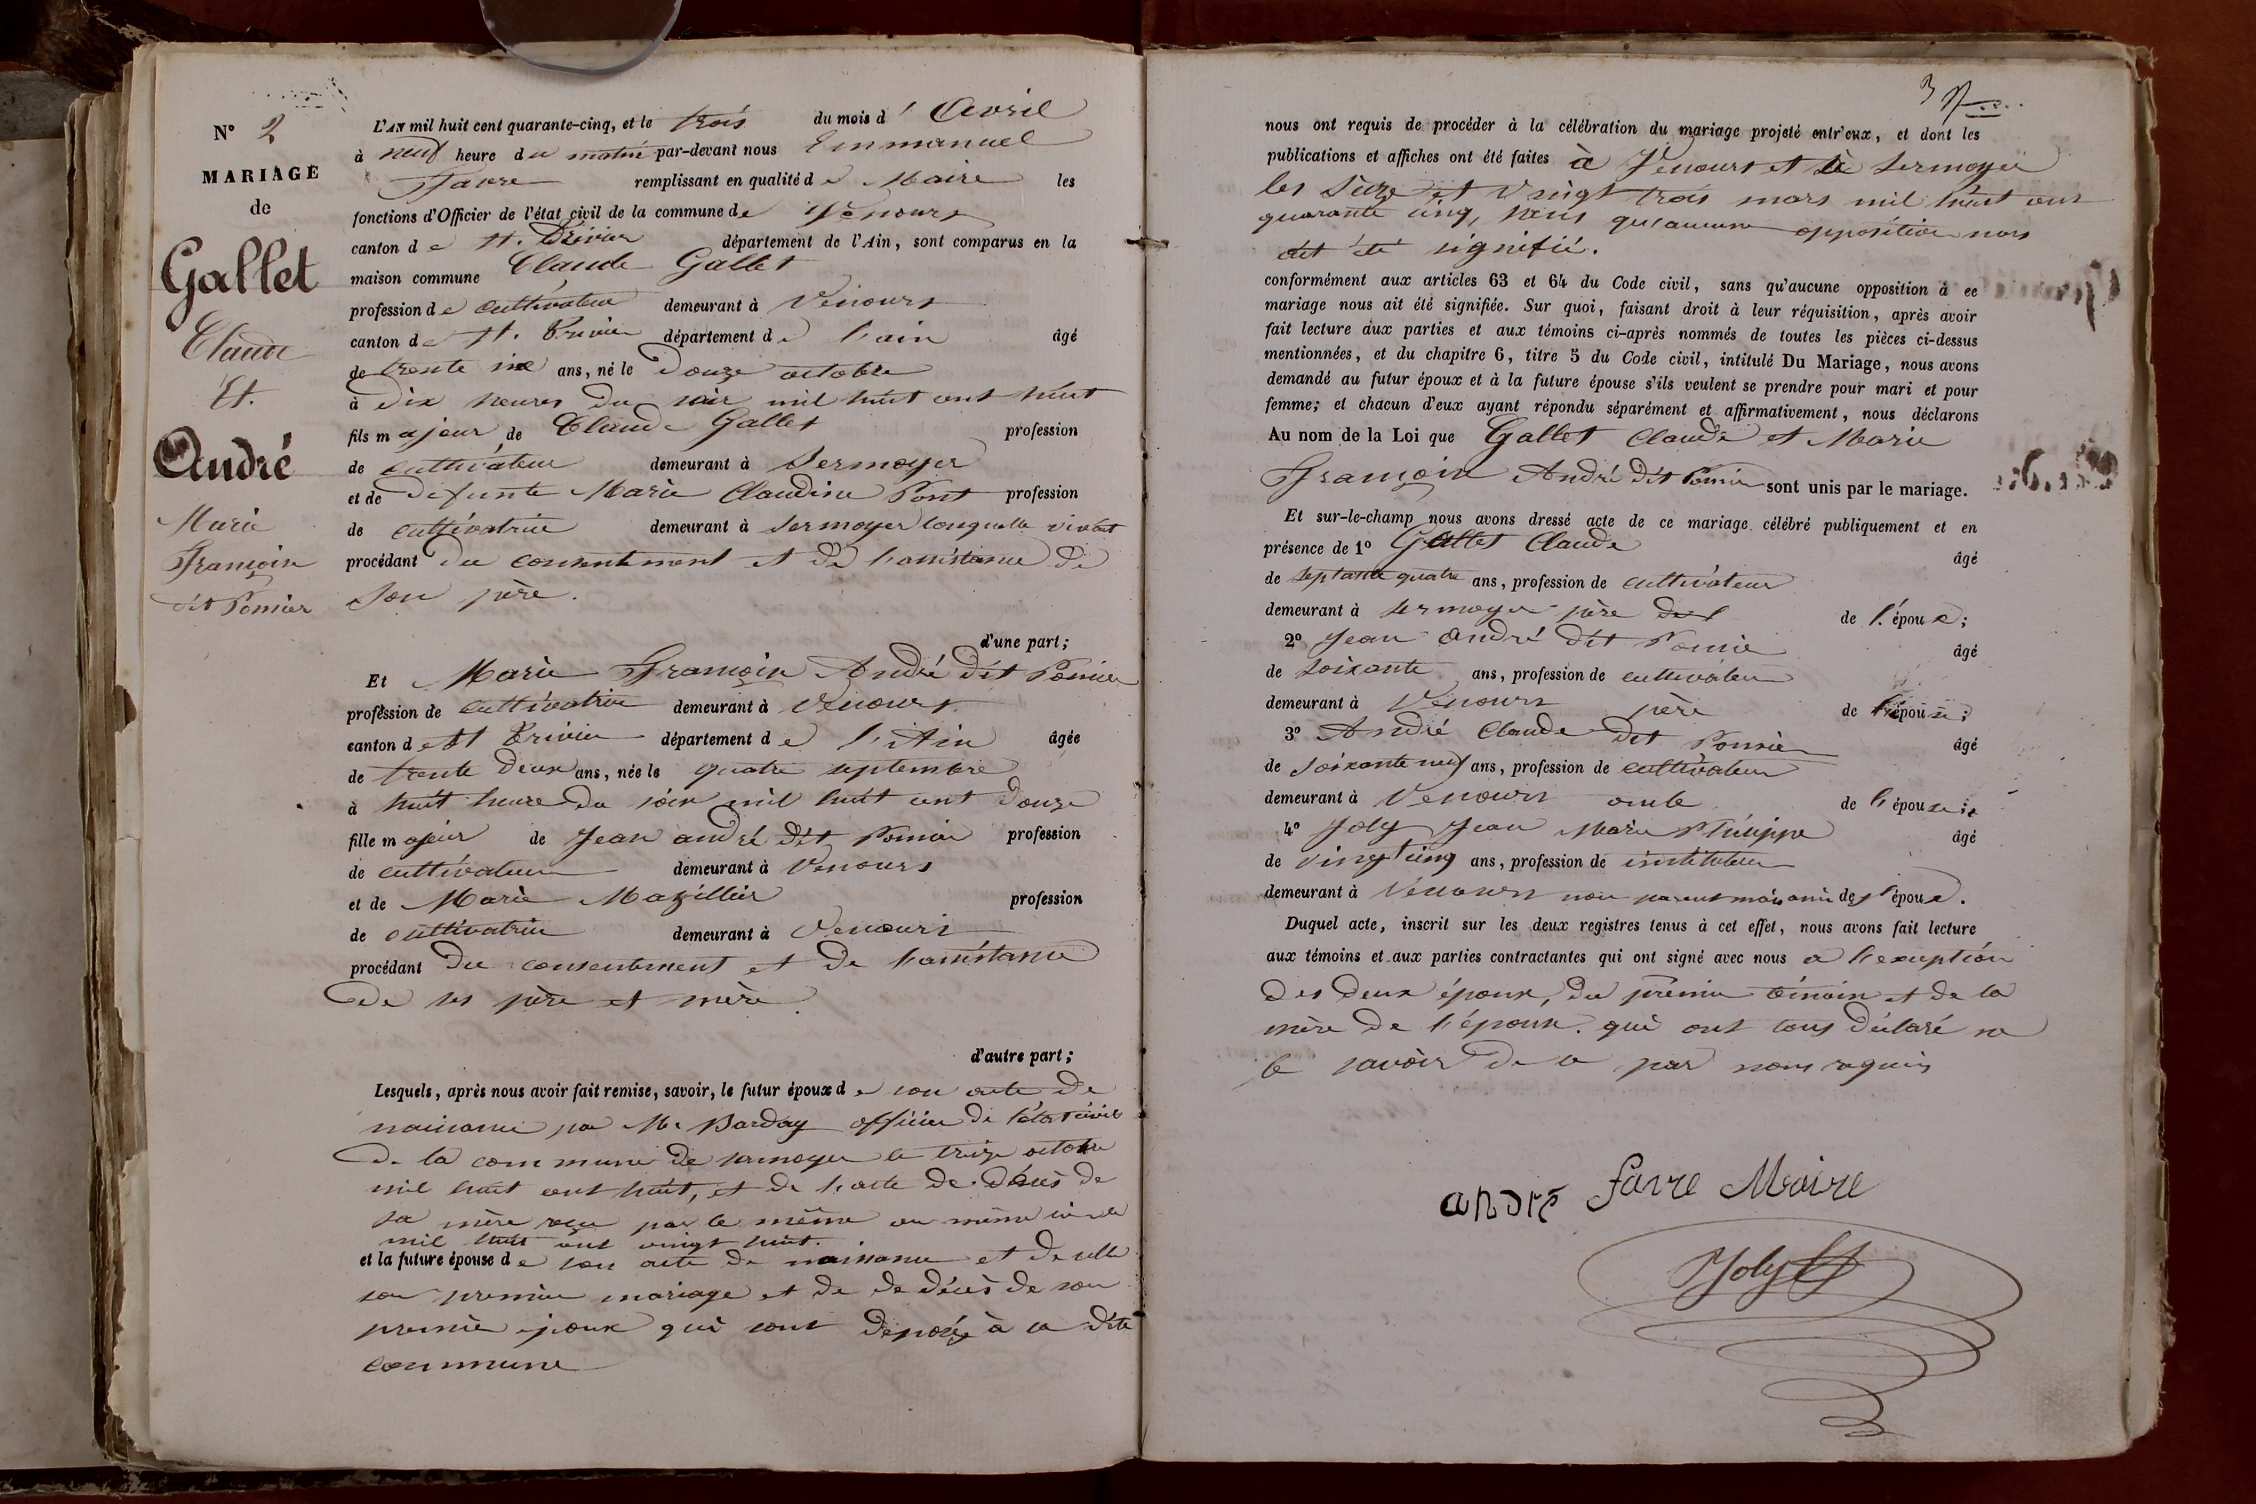 N° 2
MARIAGE
de
Gallet
Claude
Et.
André
Marie
Françoise
dit Pornier
L'AN mil huit cent quarante-cinq, et le trois du mois d'Avril
à neuf heure du matin par-devant nous Emmanuel
Favre remplissant en qualité de Maire les
fonctions d'Officier de l'état civil de la commune de Vénours
canton de St. Trivier département de l'Ain, sont comparus en la
maison commune Claude Gallet
profession de cultivateur demeurant à Vénours
canton de St. Trivier département de l'ain âgé
de trente six ans, né le Douze octobre
à dix heures du soir mil huit cent huit
fils majeur de Claude Gallet profession
de cultivateur demeurant à Sermoyer
et de defunte Marie Claudine Pont profession
de cultivatrice demeurant à Sermoyer vivant
procédant du consentement et de l'assistance de
son père.
d'une part;
Et Marie Françoise André dit Pornier
profession de cultivatrice demeurant à Vénours
canton de St Trivier département de l'Ain âgée
de trente deux ans, née le quatre septembre
à huit heure du soir mil huit cent douze
fille majeur de Jean andré dit Pornier profession
de cultivateur demeurant à Vénours
et de Marie Mazillier profession
de cultivatrice demeurant à Vénours
procédant du consentement et de l'assistance
de ses père et mère.
d'autre part;
Lesquels, après nous avoir fait remise, savoir, le futur époux de son acte de
naissance par M. Barday officier de l'état civil
de la commune de sermoyer le treize octobre
mil huit cent huit, et de l'acte de décès de
sa mère reçu par le même au même lieu le
mil huit cent vingt huit.
et la future épouse de son acte de naissance et de celle
son premier mariage et de de décès de son
premier époux qui sont déposés à la dite
commune
3
nous ont requis de procéder à la célébration du mariage projeté entr'eux, et dont les
publications et affiches ont été faites à Vénours et à Sermoyer
les seize et vingt trois mars mil huit cent
quarante cinq, sans qu'aucune opposition nous
ait été signifié.
conformément aux articles 63 et 64 du Code civil, sans qu'aucune opposition à ce
mariage nous ait été signifiée. Sur quoi, faisant droit à leur réquisition, après avoir
fait lecture aux parties et aux témoins ci-après nommés de toutes les pièces ci-dessus
mentionnées, et du chapitre 6, titre 5 du Code civil, intitulé Du Mariage, nous avons
demandé au futur époux et à la future épouse s'ils veulent se prendre pour mari et pour
femme; et chacun d'eux ayant répondu séparément et affirmativement, nous déclarons
Au nom de la Loi que Gallet Claude et Marie
Françoise André dit Pornier sont unis par le mariage.
Et sur-le-champ nous avons dressé acte de ce mariage célébré publiquement et en
présence de 1° Gallet Claude âgé
de septante quatre ans, profession de cultivateur
demeurant à Sermoyer père de l'époux;
2° Jean André dit Pornier âgé
de soixante ans, profession de cultivateur
demeurant à Vénours père de l'épouse;
3° André Claude dit Pornier âgé
de soixante neuf ans, profession de cultivateur
demeurant à Vénours oncle de l'épouse;
4° Joly Jean Marie Philippe âgé
de vingt cinq ans, profession de instituteur
demeurant à Vénours non parent mais ami des époux.
Duquel acte, inscrit sur les deux registres tenus à cet effet, nous avons fait lecture
aux témoins et aux parties contractantes qui ont signé avec nous a l'exception
des deux époux, du premier témoin et de la
mère de l'épouse qui ont tous déclaré ne
le savoir de ce par nous requis
andré favre Maire
Joly